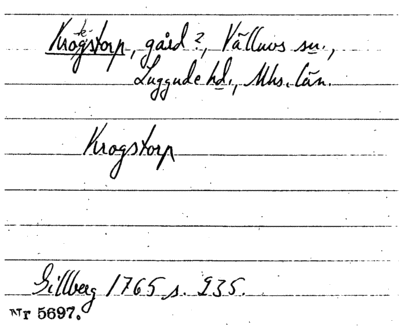 Krogstorp, gård?, Välluvs sn.,
Luggude hd., Mhs. län.
Krogstorp
Gillberg 1765 s. 235.
Nr 5697.